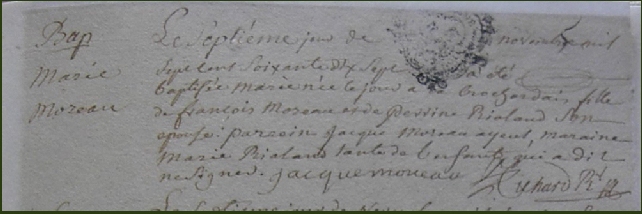 Bap
Marie
Moreau
Le septième jour de novembre mil
sept cent soixante dix sept a été
baptisée marie née le jour a la brochardais fille
de françois Moreau et de perrine Rialand son
epouse; parrein jacque Moreau ayeul, maraine
Marie Rialand tante de l'enfant qui a dit
ne signer. jacque moreau